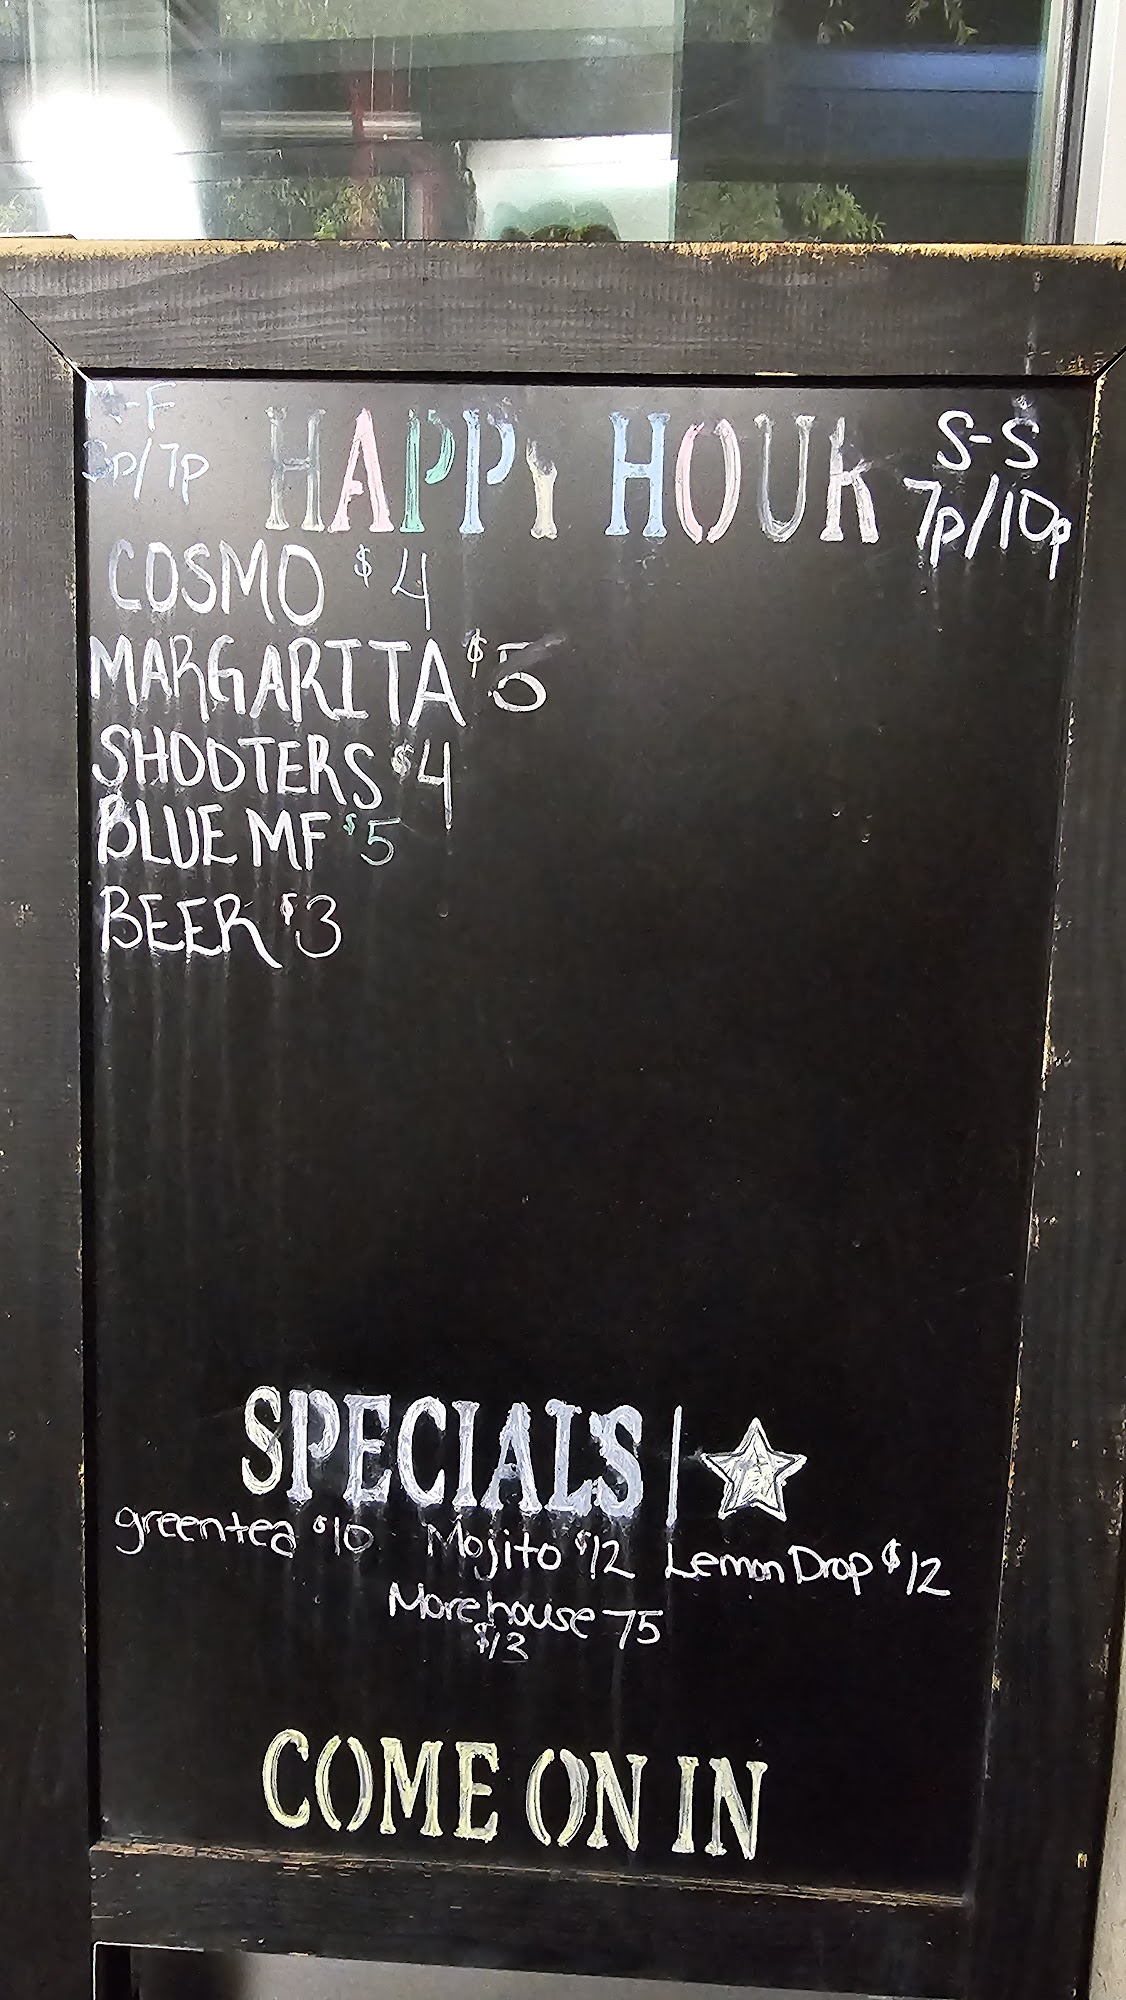 M-F
3p/7p
HAPPY HOUR
S-S
7p/10p
COSMO $4
MARGARITA $5
SHOOTERS $4
BLUE MF $5
BEER $3
SPECIALS |
greentea $10 Mojito $12 Lemon Drop $12
Morehouse 75
$13
COME ON IN